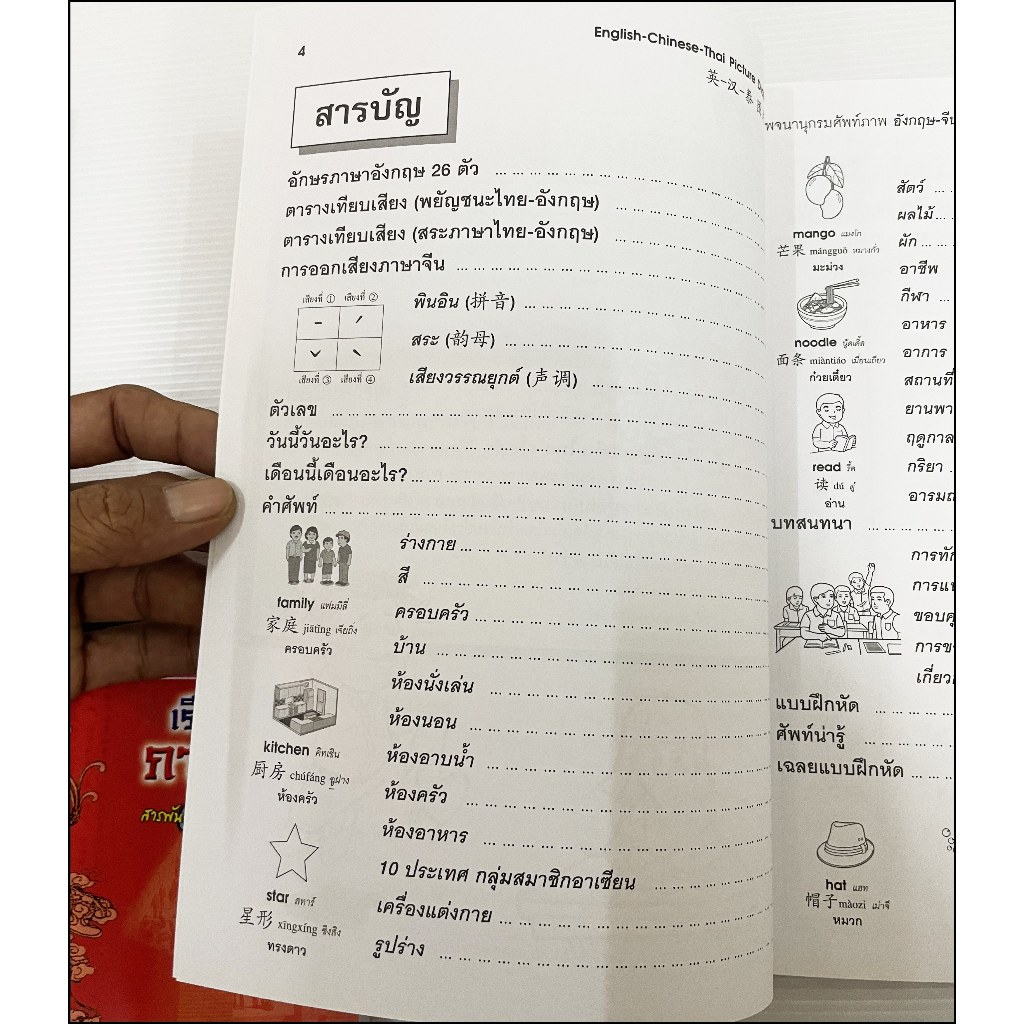 4
English-Chinese-Thai Picture
英-汉-泰
สารบัญ
อักษรภาษาอังกฤษ 26 ตัว ... ... ... ... ... ... ... ... ... ...
ตารางเทียบเสียง (พยัญชนะไทย-อังกฤษ) ... ... ... ... ... ...
ตารางเทียบเสียง (สระภาษาไทย-อังกฤษ) ... ... ... ... ... ...
การออกเสียงภาษาจีน ... ... ... ... ... ... ... ... ... ... ...
เสียงที่ ① เสียงที่ ②
เสียงที่ ③ เสียงที่ ④
พินอิน (拼音) ... ... ... ... ... ... ... ... ...
สระ (韵母) ... ... ... ... ... ... ... ... ... ...
เสียงวรรณยุกต์ (声调) ... ... ... ... ... ... ...
ตัวเลข ... ... ... ... ... ... ... ... ... ... ... ... ... ... ...
วันนี้วันอะไร? ... ... ... ... ... ... ... ... ... ... ... ... ...
เดือนนี้เดือนอะไร? ... ... ... ... ... ... ... ... ... ... ... ...
คำศัพท์ ... ... ... ... ... ... ... ... ... ... ... ... ... ... ...
family แฟมมิลี่
家庭 jiātíng เจียถิง
ครอบครัว
kitchen คิทเชิน
厨房 chúfáng ฉูฝาง
ห้องครัว
star สทาร์
星形 xīngxíng ซิงสิง
ทรงดาว
ร่างกาย ... ... ... ... ... ... ... ... ... ... ...
สี ... ... ... ... ... ... ... ... ... ... ... ...
ครอบครัว ... ... ... ... ... ... ... ... ... ...
บ้าน ... ... ... ... ... ... ... ... ... ... ...
ห้องนั่งเล่น ... ... ... ... ... ... ... ... ...
ห้องนอน ... ... ... ... ... ... ... ... ... ...
ห้องอาบน้ำ ... ... ... ... ... ... ... ... ...
ห้องครัว ... ... ... ... ... ... ... ... ... ...
ห้องอาหาร ... ... ... ... ... ... ... ... ...
10 ประเทศ กลุ่มสมาชิกอาเซียน ... ... ... ...
เครื่องแต่งกาย ... ... ... ... ... ... ... ...
รูปร่าง ... ... ... ... ... ... ... ... ... ...
พจนานุกรมศัพท์ภาพ อังกฤษ-จีน
mango แมงโก
芒果 mángguǒ หมางกั่ว
มะม่วง
noodle นู้ดเดิ้ล
面条 miàntiáo เมี่ยนเถียว
ก๋วยเตี๋ยว
read รี้ด
读 dú ตู๋
อ่าน
สัตว์ ...
ผลไม้ ...
ผัก ... ...
อาชีพ
กีฬา ...
อาหาร
อาการ
สถานที่
ฤดูกาล
กริยา ...
บทสนทนา ... ... ... ...
แบบฝึกหัด ... ... ...
ศัพท์น่ารู้ ... ... ... ...
เฉลยแบบฝึกหัด ... ...
hat แฮท
帽子 màozi เม่าจึ
หมวก